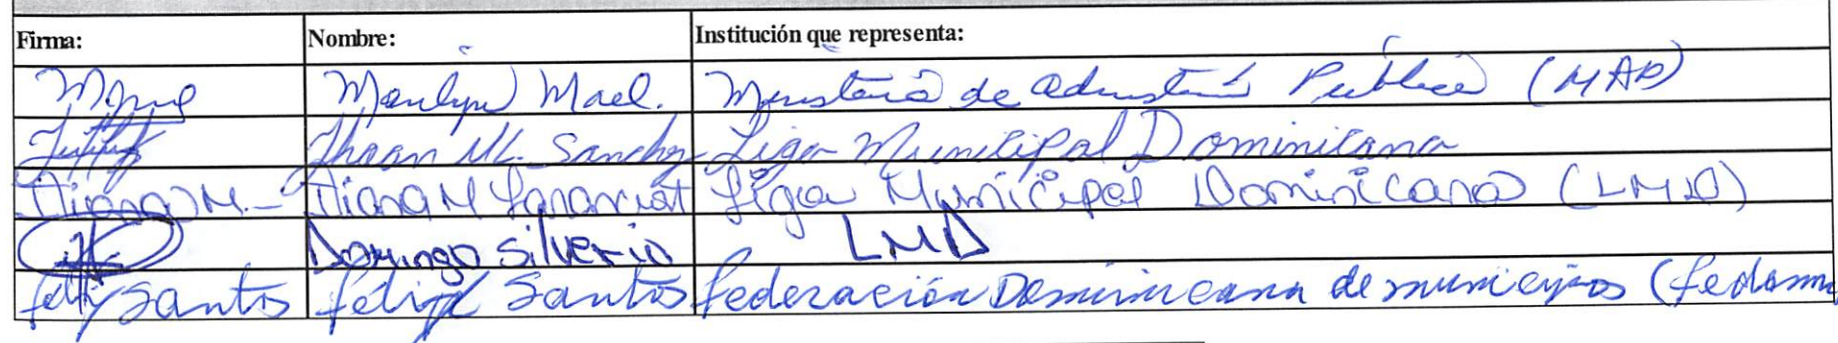 Firma: Nombre: Institución que representa:
Marilyn Mael. Ministerio de Public (MAP)
Sanchez Liga Municipal Dominicana
Diana M. Diana M Liga Municipal Dominicana (LMD)
Domingo Silverio LMD
felix santos felix Santos federación Dominicana de municipios (fedomu